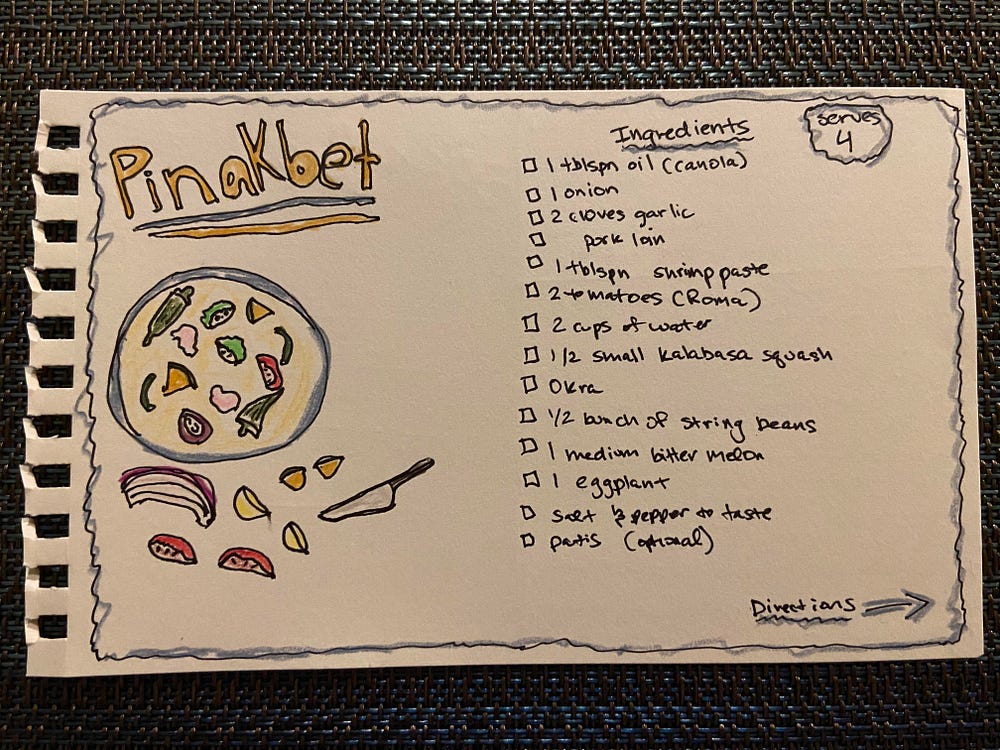 PinaKbet
serves
4
Ingredients
1 tblspn oil (canola)
1 onion
2 cloves garlic
pork loin
1 tblspn shrimp paste
2 tomatoes (Roma)
2 cups of water
1/2 small kalabasa squash
Okra
1/2 bunch of string beans
1 medium bitter melon
1 eggplant
salt & pepper to taste
patis (optional)
Directions